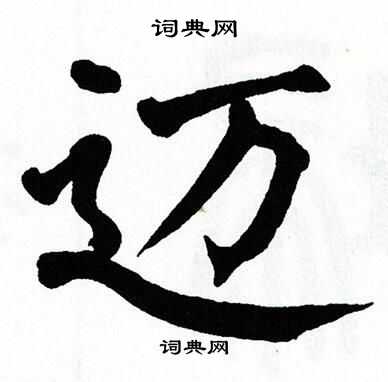 词典网
迈
词典网